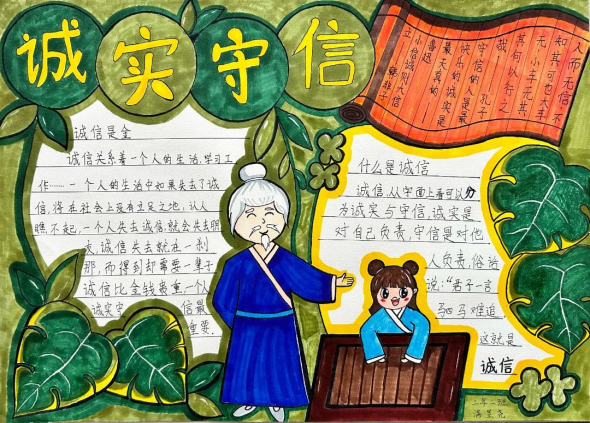 诚实守信
人而无信不
知其可也大车
无小车无其
何以行之
哉 孔子
守信的人是最
快乐的诚实是
最天真的
小信诚则大信
立 韩非子
诚信是金
诚信关系着一个人的生活,学习工
作……一个人的生活中如果失去了诚
信,将在社会上没有立足之地,让人
瞧不起,一个人失去诚信,就会失去朋
友,诚信失去就在一刹
那,而得到却需要一辈子
诚信比金钱贵重一个人
诚实守 信最
重要.
什么是诚信
诚信,从字面上看可以分
为诚实与守信,诚实是
对自己负责,守信是对他
人负责,俗话
说:“君子一言
驷马难追
这就是
诚信
二年二班